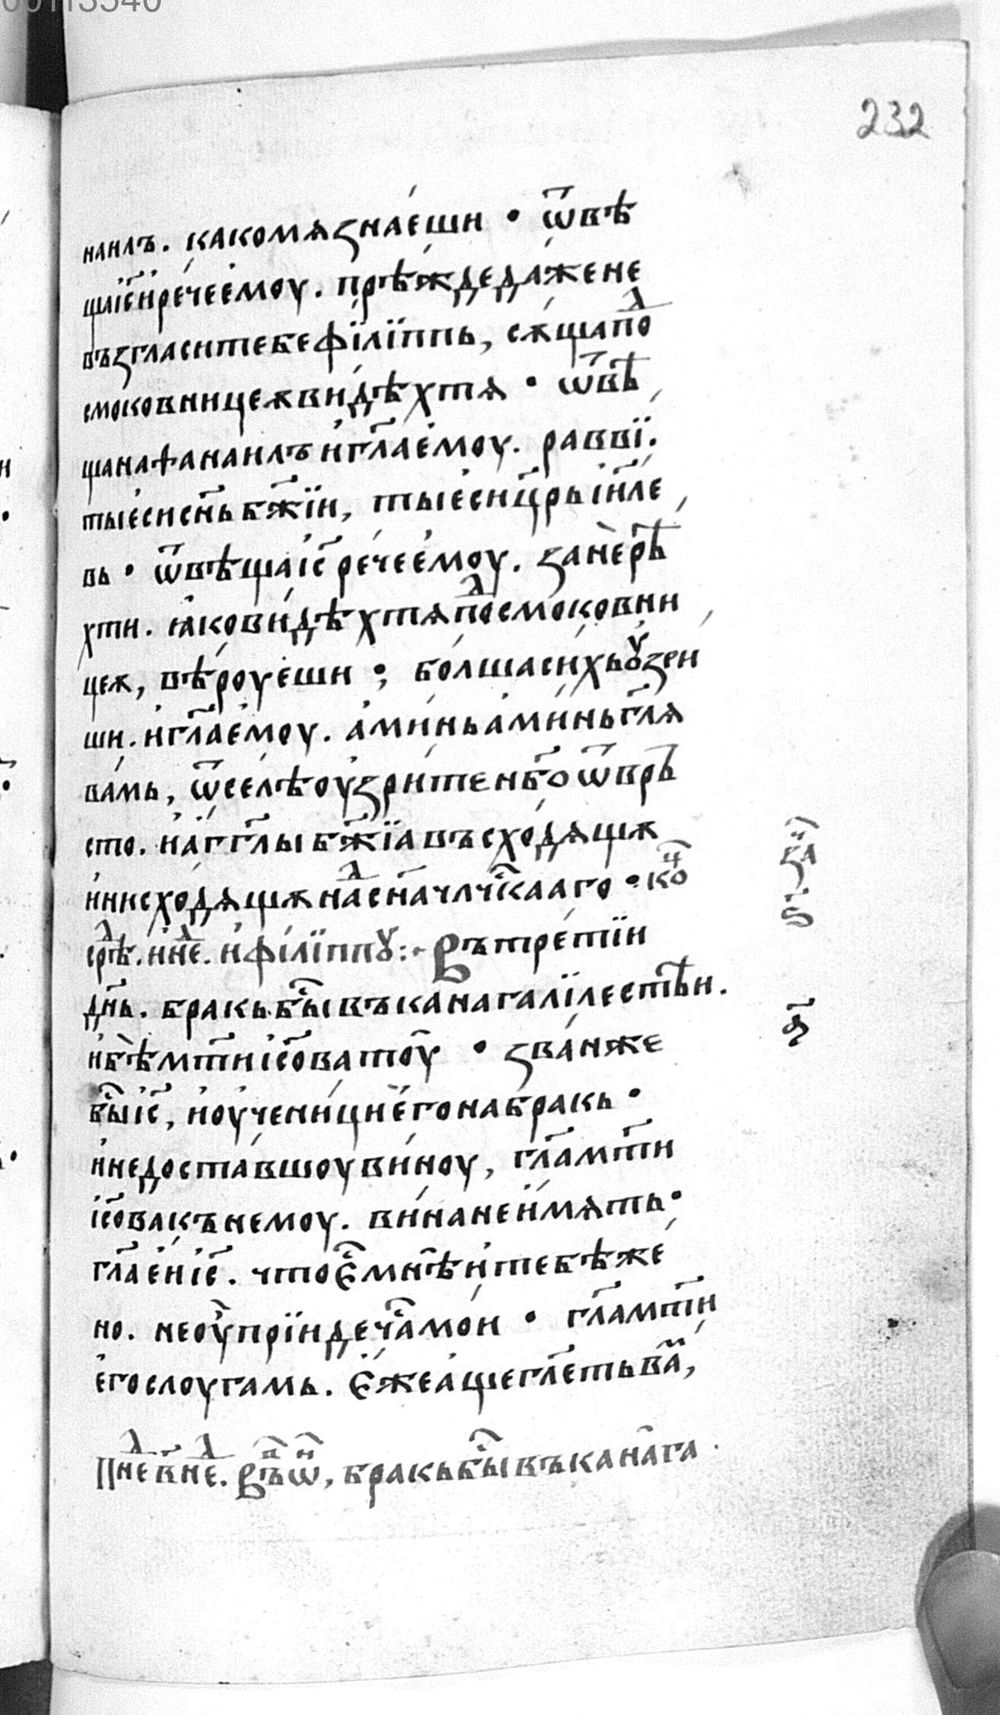 00113540
232
наилъ. како мѧ знае́ши • ѿвѣ
ща і҆с҃ и҆ рече е҆моу. прѣжде даже не
възгласи тебе фїлїппь, сѫща по^д
смоковницеѫ видѣх тѧ • ѿвѣ
ща наѳанаилъ и҆ гл҃а е҆моу. раввї.
ты е҆си сн҃ь бж҃їи, ты е҆си цр҃ь і҆и҃ле
вь • ѿвѣща і҆с҃ рече е҆моу. зане рѣ
х ти. ꙗко видѣх тѧ по^д смоковни
цеѫ, вѣроуеши ; болша сихь оу҆зри
ши. и҆ гл҃а е҆моу. а҆минь а҆минь гл҃ѧ
вамь, ѿселѣ оу҆зрите нб҃о ѿвръ
сто. и҆ а҆гг҃лы бж҃їа въсходѧщѫ
и҆ нисходѧщѫ на^д сн҃а чл҃чскааго • ко^н
срѣ^д. н҃не^д. и҆ фїлїппꙋ :· Въ третїи
дн҃ь. бракь бы^с въ кана галїлестѣи.
и҆ бѣ мт҃и і҆с҃ова тоу • зван же
бы^с і҆с҃, и҆ оу҆ченици е҆го на бракь •
и҆ не доставшоу виноу, гл҃а мт҃и
і҆с҃ова къ немоу. вина не и҆мѧть •
гл҃а е҆и і҆с҃. что е^с мнѣ и҆ тебѣ же
но. не оу҆ прїиде ча^с мои • гл҃а мт҃и
е҆го слоугамь. е҆же а҆ще гл҃еть ва^м,
за^ч
ѕ
а҃
п не^д в҃ не^д. В^ъ ѿ^н, бракь бы^с въ кана га